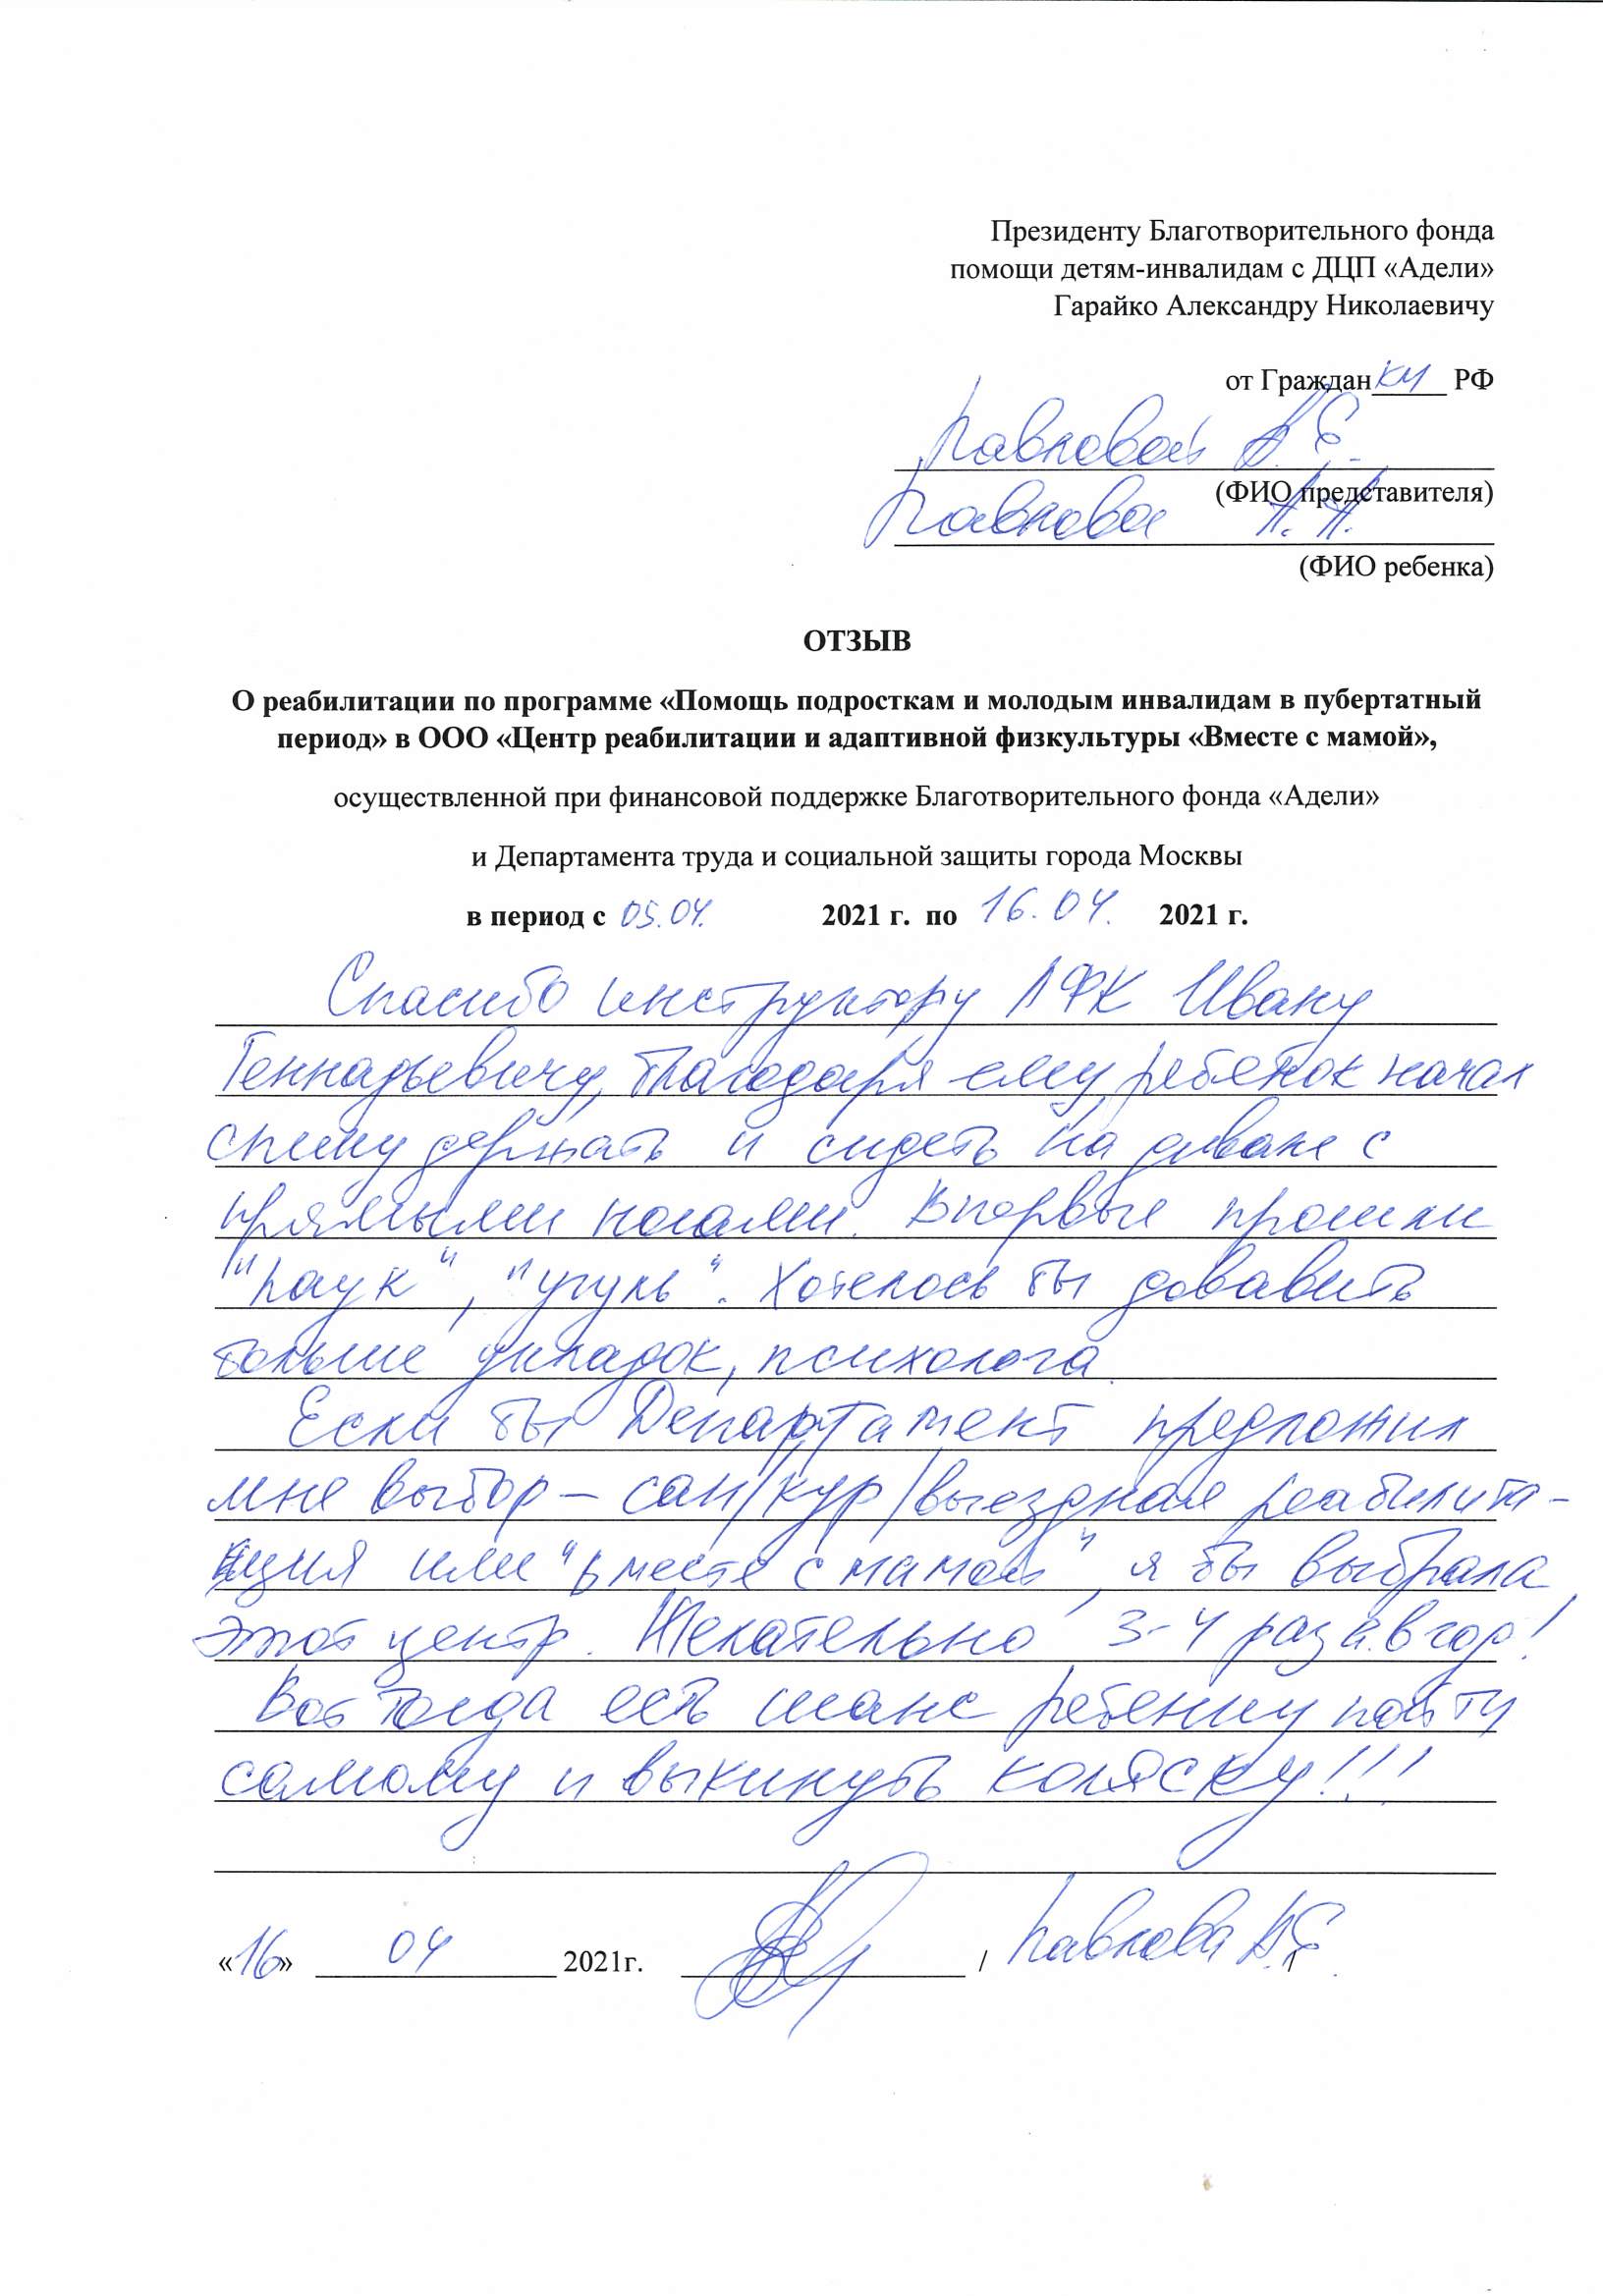 Президенту Благотворительного фонда
помощи детям-инвалидам с ДЦП «Адели»
Гарайко Александру Николаевичу
от Гражданки РФ
Павловой А. Е.
(ФИО представителя)
Павлова А. А.
(ФИО ребенка)
ОТЗЫВ
О реабилитации по программе «Помощь подросткам и молодым инвалидам в пубертатный
период» в ООО «Центр реабилитации и адаптивной физкультуры «Вместе с мамой»,
осуществленной при финансовой поддержке Благотворительного фонда «Адели»
и Департамента труда и социальной защиты города Москвы
в период с 05.04. 2021 г. по 16.04. 2021 г.
Спасибо инструктору ЛФК Ивану
Геннадьевичу, благодаря ему ребенок начал
спину держать и сидеть на диване с
прямыми ногами. Впервые прошли
"паук", "угуль". Хотелось бы добавить
больше укладок, психолога.
Если бы Департамент предложил
мне выбор – сан/кур/выездная реабилита-
ция или "Вместе с мамой", я бы выбрала
этот центр. Желательно 3-4 раза в год!
Вот тогда есть шанс ребенку пойти
самому и выкинуть коляску!!!
«16» 04 2021г. / Павлова А. Е. /